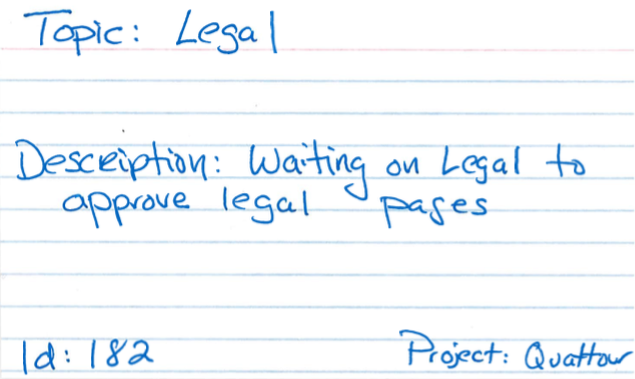 Topic: Legal
Description: Waiting on Legal to
approve legal pages
Id: 182 Project: Quattour